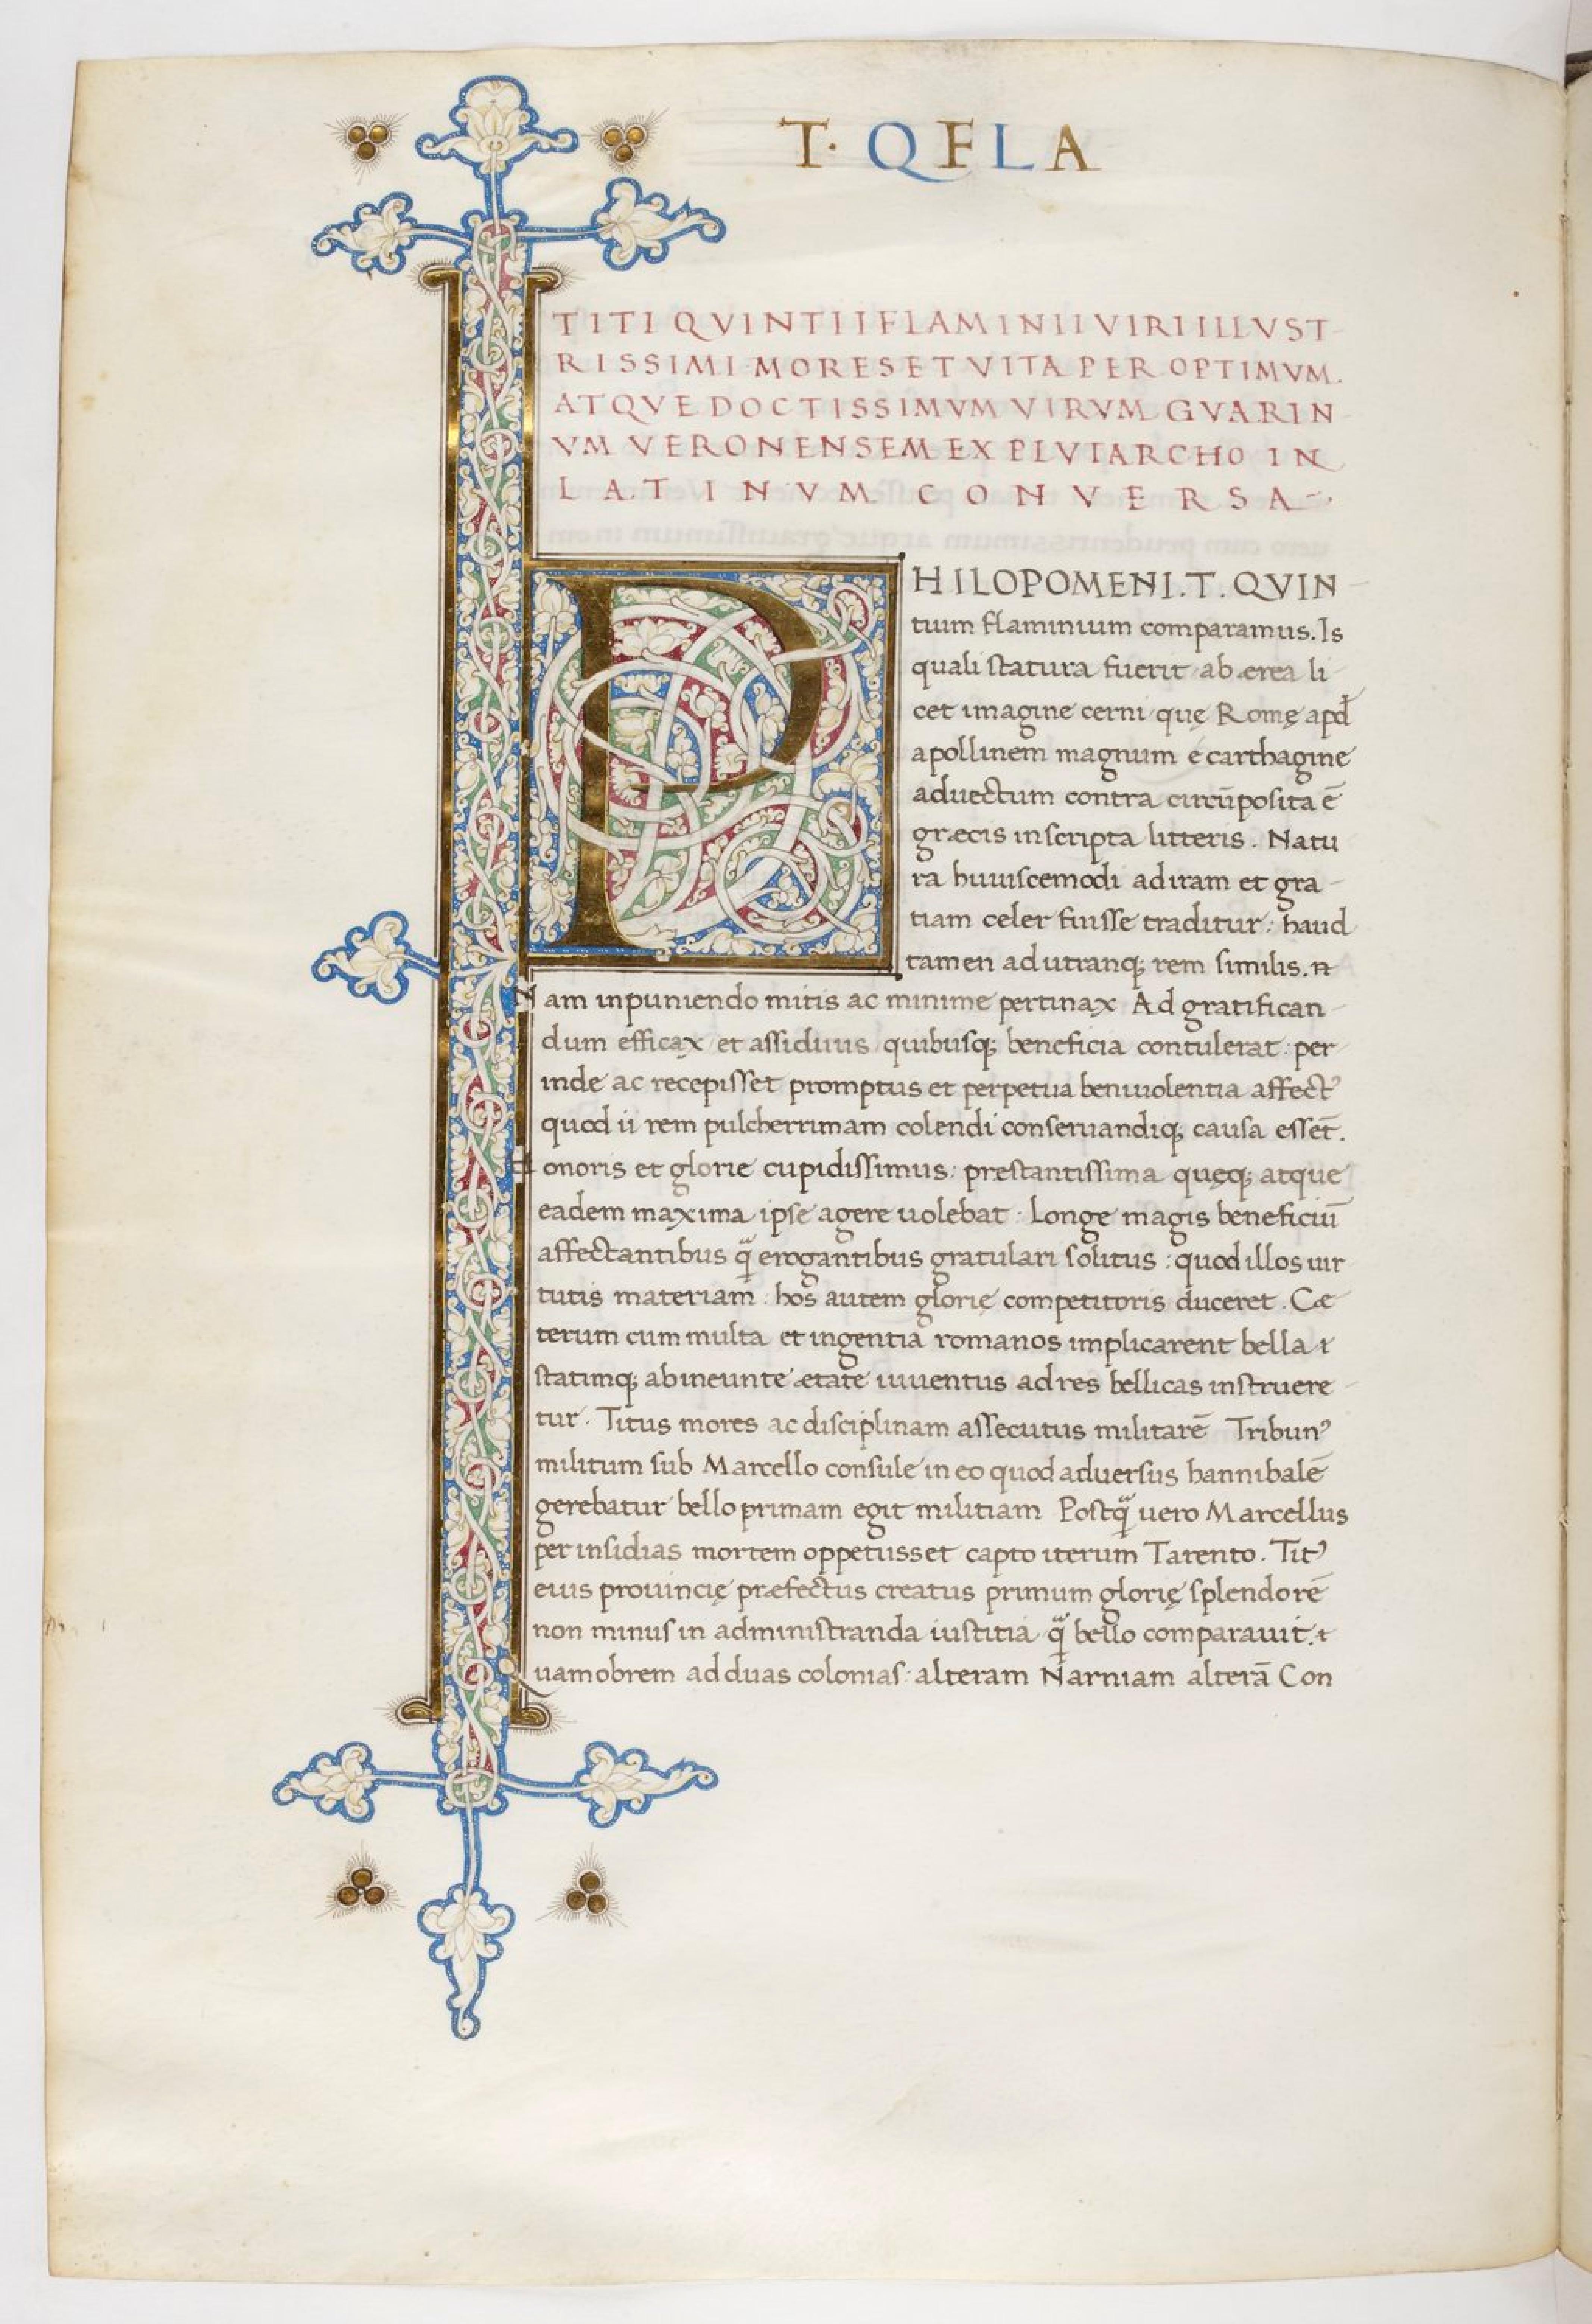 T. Q F L A
TITI QVINTII FLAMINII VIRI ILLVST-
RISSIMI MORES ET VITA PER OPTIMVM.
ATQVE DOCTISSIMVM VIRVM GVARIN-
VM VERONENSEM EX PLVTARCHO IN
LATINVM CONVERSA-.
PHILOPOMENI. T. QVIN-
tium flaminium comparamus. Is
quali statura fuerit ab ęrea li-
cet imagine cerni quę Romę apđ
apollinem magnum e carthagine
aduectum contra circūposita ē
græcis inscripta litteris. Natu
ra huiuscemodi ad iram et gra-
tiam celer fuisse traditur: haud
tamen ad utranq; rem similis. n
Nam in puniendo mitis ac minime pertinax Ad gratifican-
dum efficax et assiduus quibusq; beneficia contulerat: per-
inde ac recepisset promptus et perpetua beniuolentia affect⁹
quod ii rem pulcherrimam colendi conseruandiq; causa essēt.
Honoris et glorie cupidissimus: prestantissima quęq; atque
eadem maxima ipse agere uolebat: Longe magis beneficiū
affectantibus q̃ erogantibus gratulari solitus: quod illos uir
tutis materiam: hos autem glorię competitoris duceret. Cæ-
terum cum multa et ingentia romanos implicarent bella &
statimq; ab ineunte ætate iuuentus ad res bellicas instruere-
tur. Titus mores ac disciplinam assecutus militarē Tribun⁹
militum sub Marcello consule in eo quod aduersus hannibalē
gerebatur bello primam egit militiam Postq̃ uero Marcellus
per insidias mortem oppetiisset capto iterum Tarento. Tit⁹
eius prouincię præfectus creatus primum glorię splendorē
non minus in administranda iustitia q̃ bello comparauit. &
Quamobrem ad duas colonias: alteram Narniam alterā Con